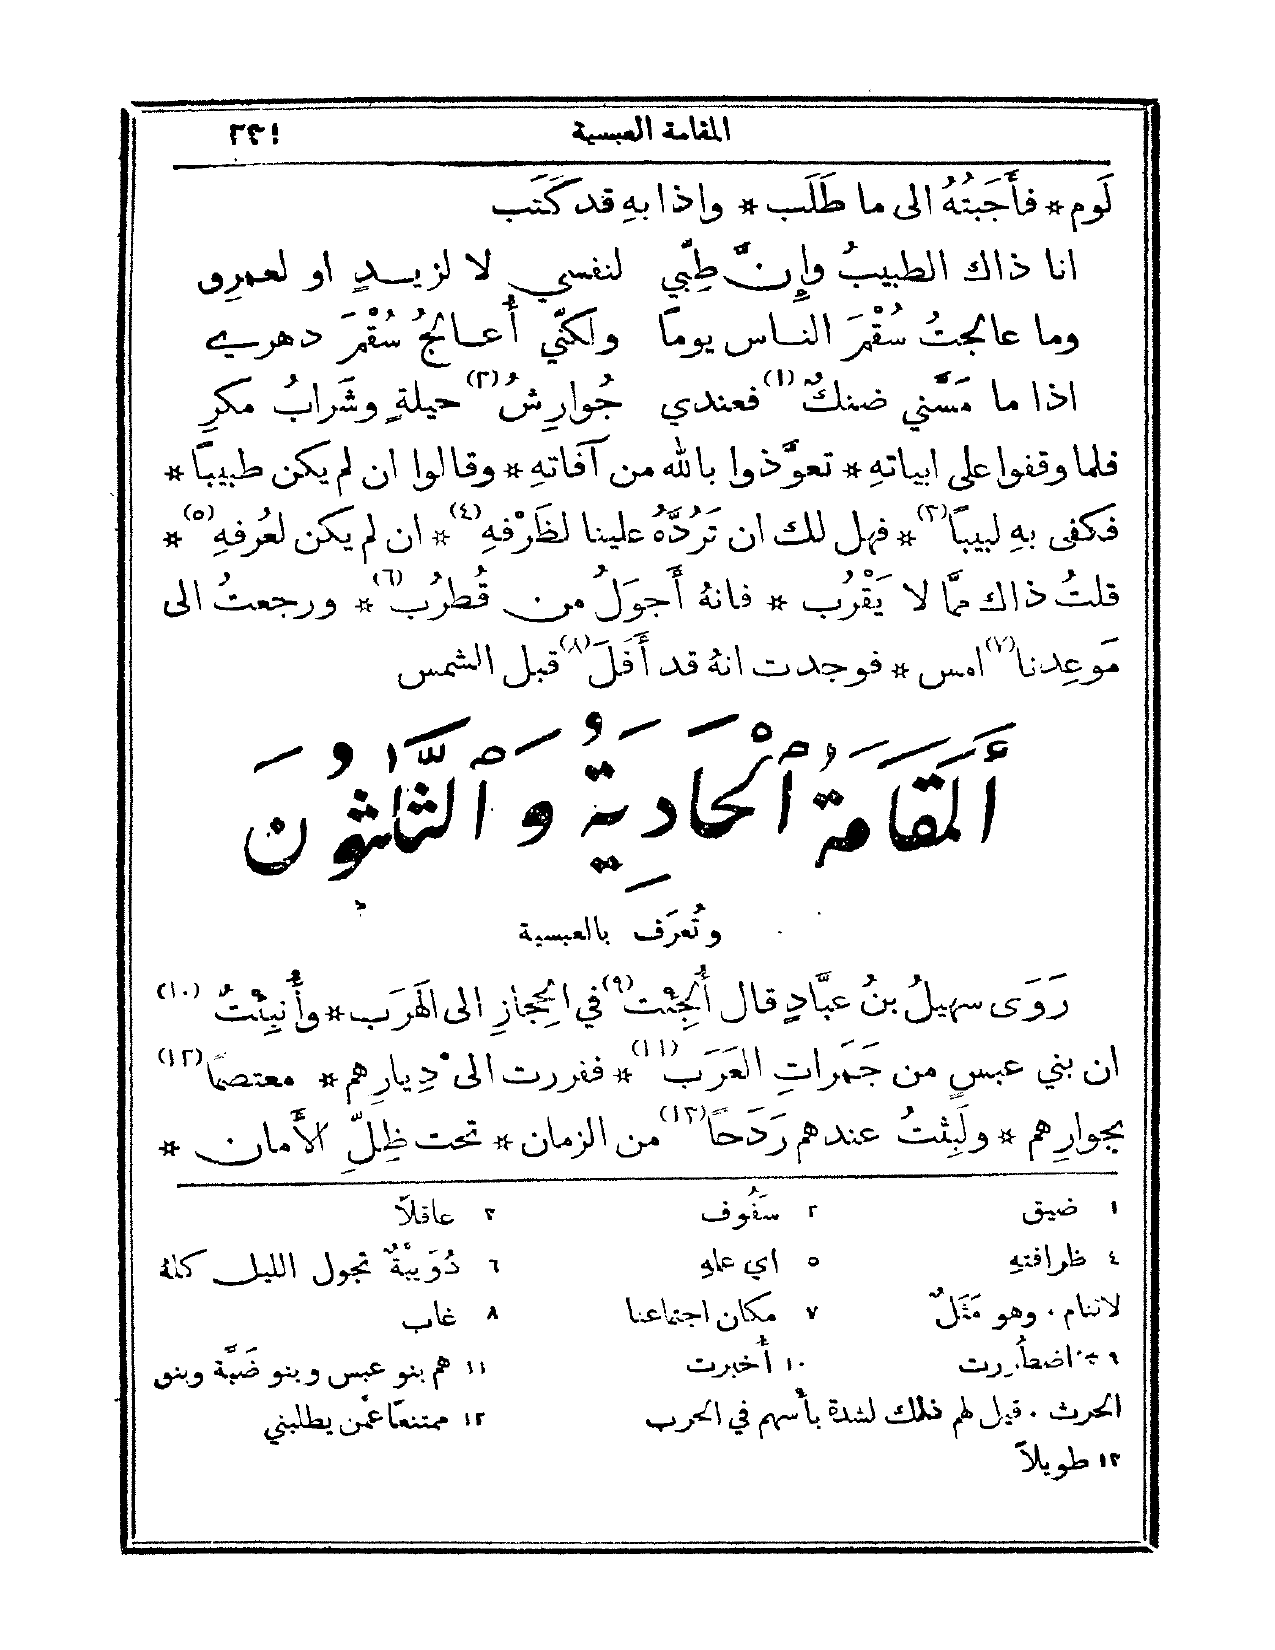 المقامة العبسية ٢٣١
لَوم * فأَجَبتُهُ الى ما طَلَب * واذا بهِ قد كَتَب
انا ذاك الطبيبُ وإِنَّ طِبّي لنفسي لا لزيدٍ او لعمرِو
وما عالجتُ سُقْمَ الناس يوماً ولكنّي أُعالجُ سُقْمَ دهري
اذا ما مَسَّني ضنكٌ (١) فعندي جُوارِشُ (٢) حيلةٍ وشَرابُ مكرِ
فلما وقفوا على ابياتهِ * تعوَّذوا بالله من آفاتهِ * وقالوا ان لم يكن طبيباً *
فكفى بهِ لبيباً (٣) * فهل لك ان تَرُدَّهُ علينا لظَرْفهِ (٤) * ان لم يكن لعُرفهِ (٥) *
قلتُ ذاك ممَّا لا يَقْرُب * فانهُ أَجولُ من قُطرُب (٦) * ورجعتُ الى
مَوعِدنا (٧) امس * فوجدت انهُ قد أَفَلَ (٨) قبل الشمس
أَلمَقَامَةُ ٱلْحَادِيَةُ وَٱلثَّلَاثُونَ
وتُعرَف بالعبسية
رَوَى سهيلُ بنُ عبَّادٍ قال أُلجِئْت (٩) في الحِجازِ الى الهَرَب * وأُنبِئْتُ (١٠)
ان بني عبسٍ من جَمَراتِ العَرَب (١١) * ففررت الى دِيارِهم * معتصماً (١٢)
بجوارِهم * ولَبِثتُ عندهم رَدَحاً (١٣) من الزمان * تحت ظِلِّ الأَمان *
١ ضيق ٢ سَفُوف ٣ عاقلاً
٤ ظرافتهِ ٥ اي علمهِ ٦ دُوَيبَّةٌ تجول الليل كلهُ
لا تنام . وهو مَثَلٌ ٧ مكان اجتماعنا ٨ غاب
٩ اضطُررت ١٠ أُخبرت ١١ هم بنو عبس وبنو ضَبَّة وبنو
الحرث . قيل لهم ذلك لشدة بأسهم في الحرب ١٢ ممتنعاً عمَّن يطلبني
١٣ طويلاً